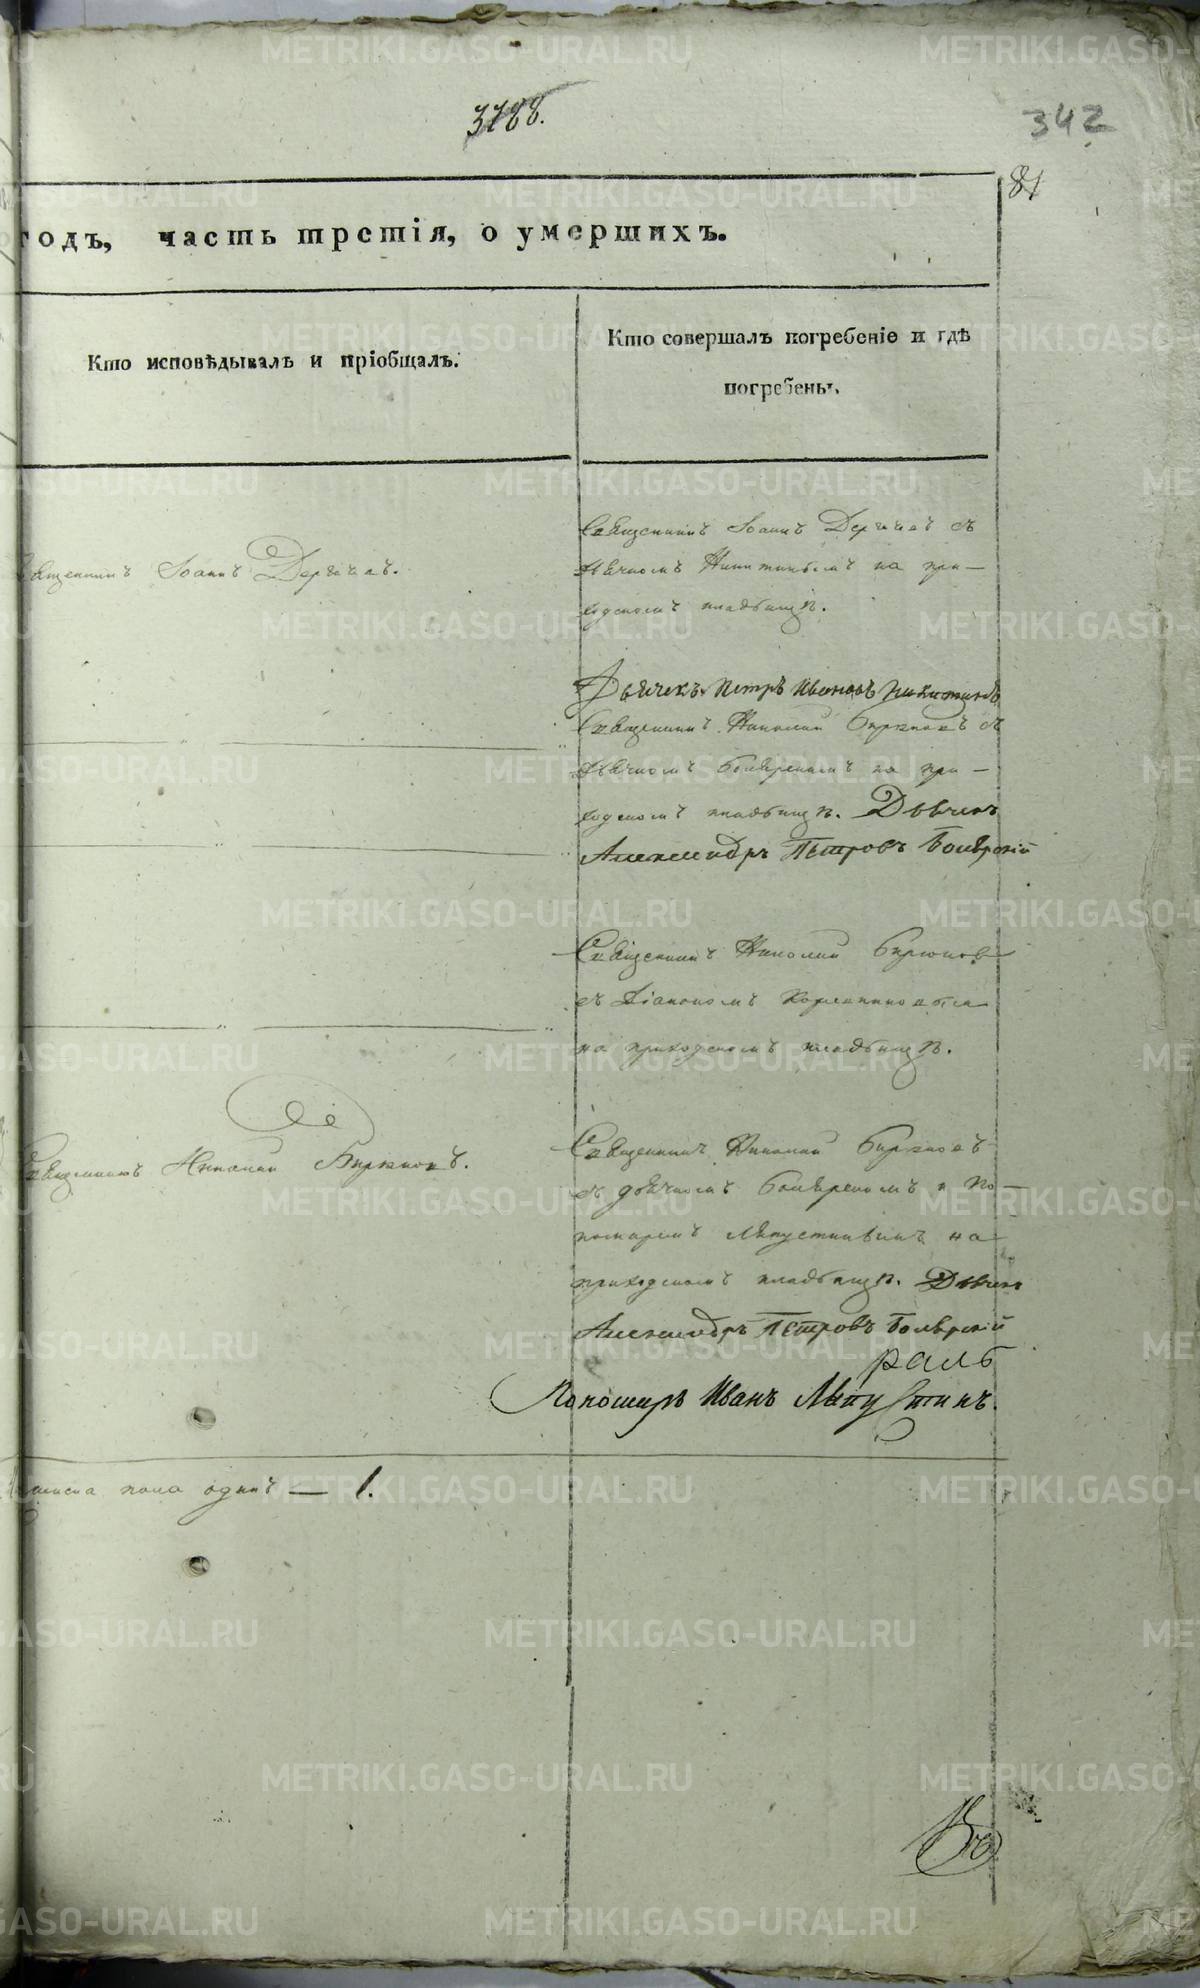 3788.
342
81
годъ, часть третія, о умершихъ.
Кто исповѣдывалъ и пріобщалъ.
Кто совершалъ погребеніе и гдѣ
погребены.
Священникъ Іоаннъ Дергачевъ съ
дьячкомъ Никитинымъ на при-
ходскомъ кладбищѣ.
Священникъ Іоаннъ Дергачевъ.
Дьячекъ Петръ Ивановъ Никитинъ
Священникъ Николай Бирюковъ съ
дьячкомъ Боярскимъ на при-
ходскомъ кладбищѣ. Дьячекъ
Александръ Петровъ Боярскій
Священникъ Николай Бирюковъ
съ Діакономъ
на приходскомъ кладбищѣ.
Священникъ Николай Бирюковъ.
Священникъ Николай Бирюковъ
съ дьячкомъ Боярскимъ и По-
номаремъ Ляпустинымъ на
приходскомъ кладбищѣ. Дьячекъ
Александръ Петровъ Боярскій
Пономарь Иванъ Ляпустинъ.
пола одинъ — 1.
METRIKI.GASO-URAL.RU